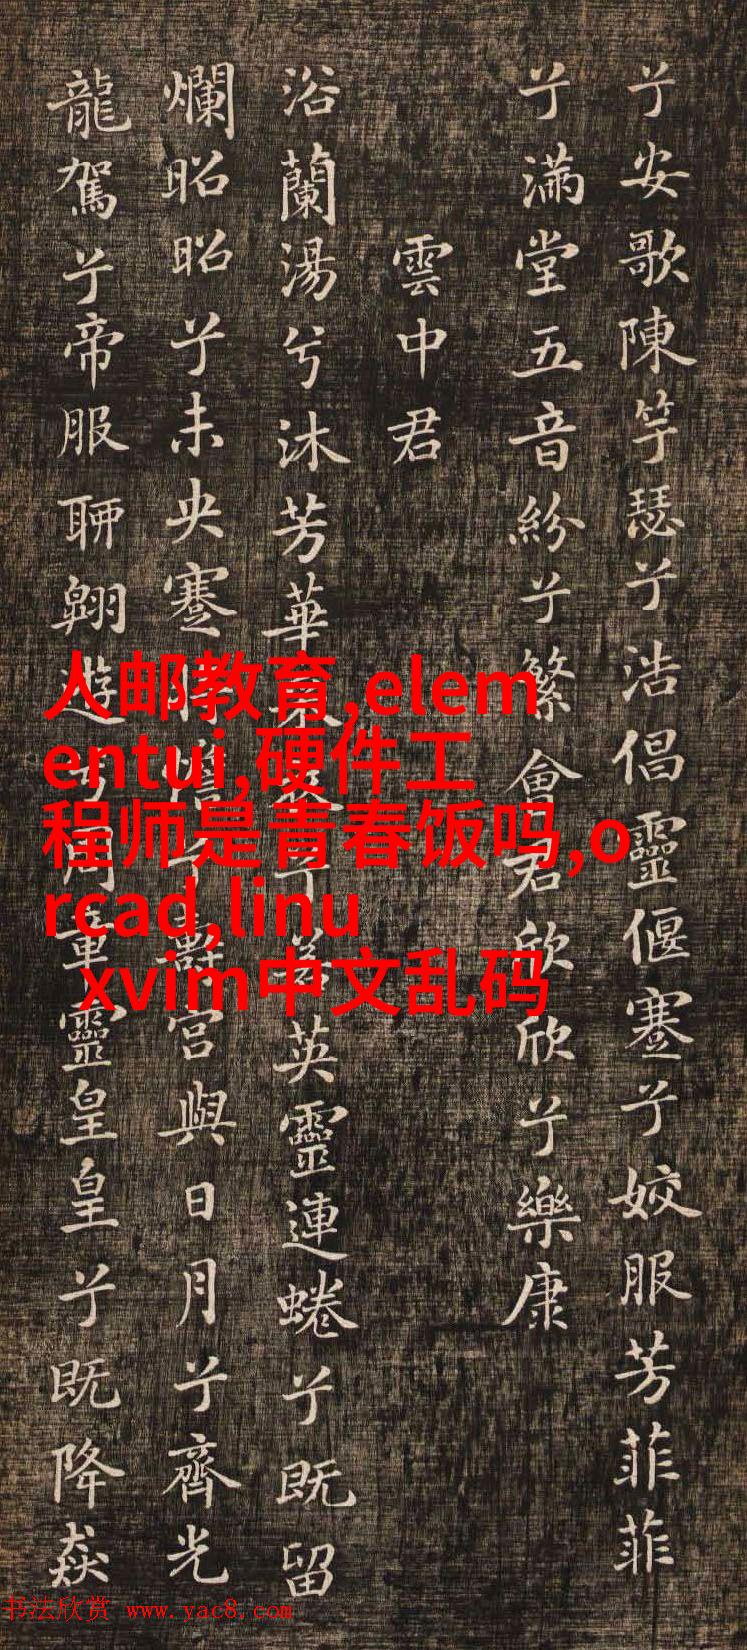 兮安歌陳竽瑟兮浩倡靈偃蹇兮姣服芳菲菲
兮滿堂五音紛兮繁會君欣欣兮樂康
雲中君
浴蘭湯兮沐芳華采衣兮若英靈連蜷兮既留
爛昭昭兮未央蹇將憺兮壽宮與日月兮齊光
龍駕兮帝服聊翱遊兮周章靈皇皇兮既降猋
人邮教育,elem
entui,硬件工
程师是青春饭吗,o
rcad,linu
xvim中文乱码
书法欣赏 www.yac8.com